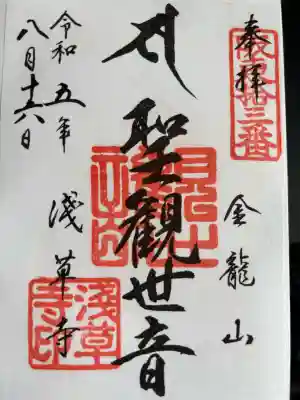 奉拝
坂東拾三番
金龍山
聖観世音
浅草寺
淺草寺印
令和五年
八月十六日